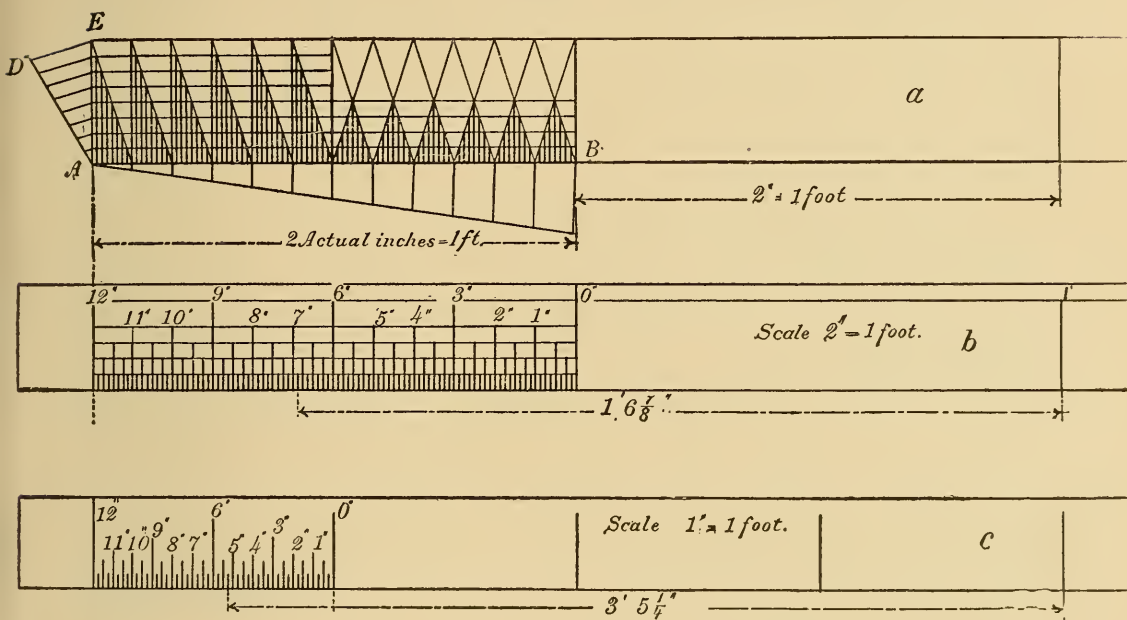 E
D
a
A
B
2" = 1 foot
2 Actual inches = 1 ft.
12" 9" 6" 3" 0" 1'
11" 10" 8" 7" 5" 4" 2" 1"
Scale 2" = 1 foot. b
1' 6 7/8"
12" 6" 0"
11" 10" 9" 8" 7" 5" 4" 3" 2" 1"
Scale 1" = 1 foot. c
3' 5 1/4"